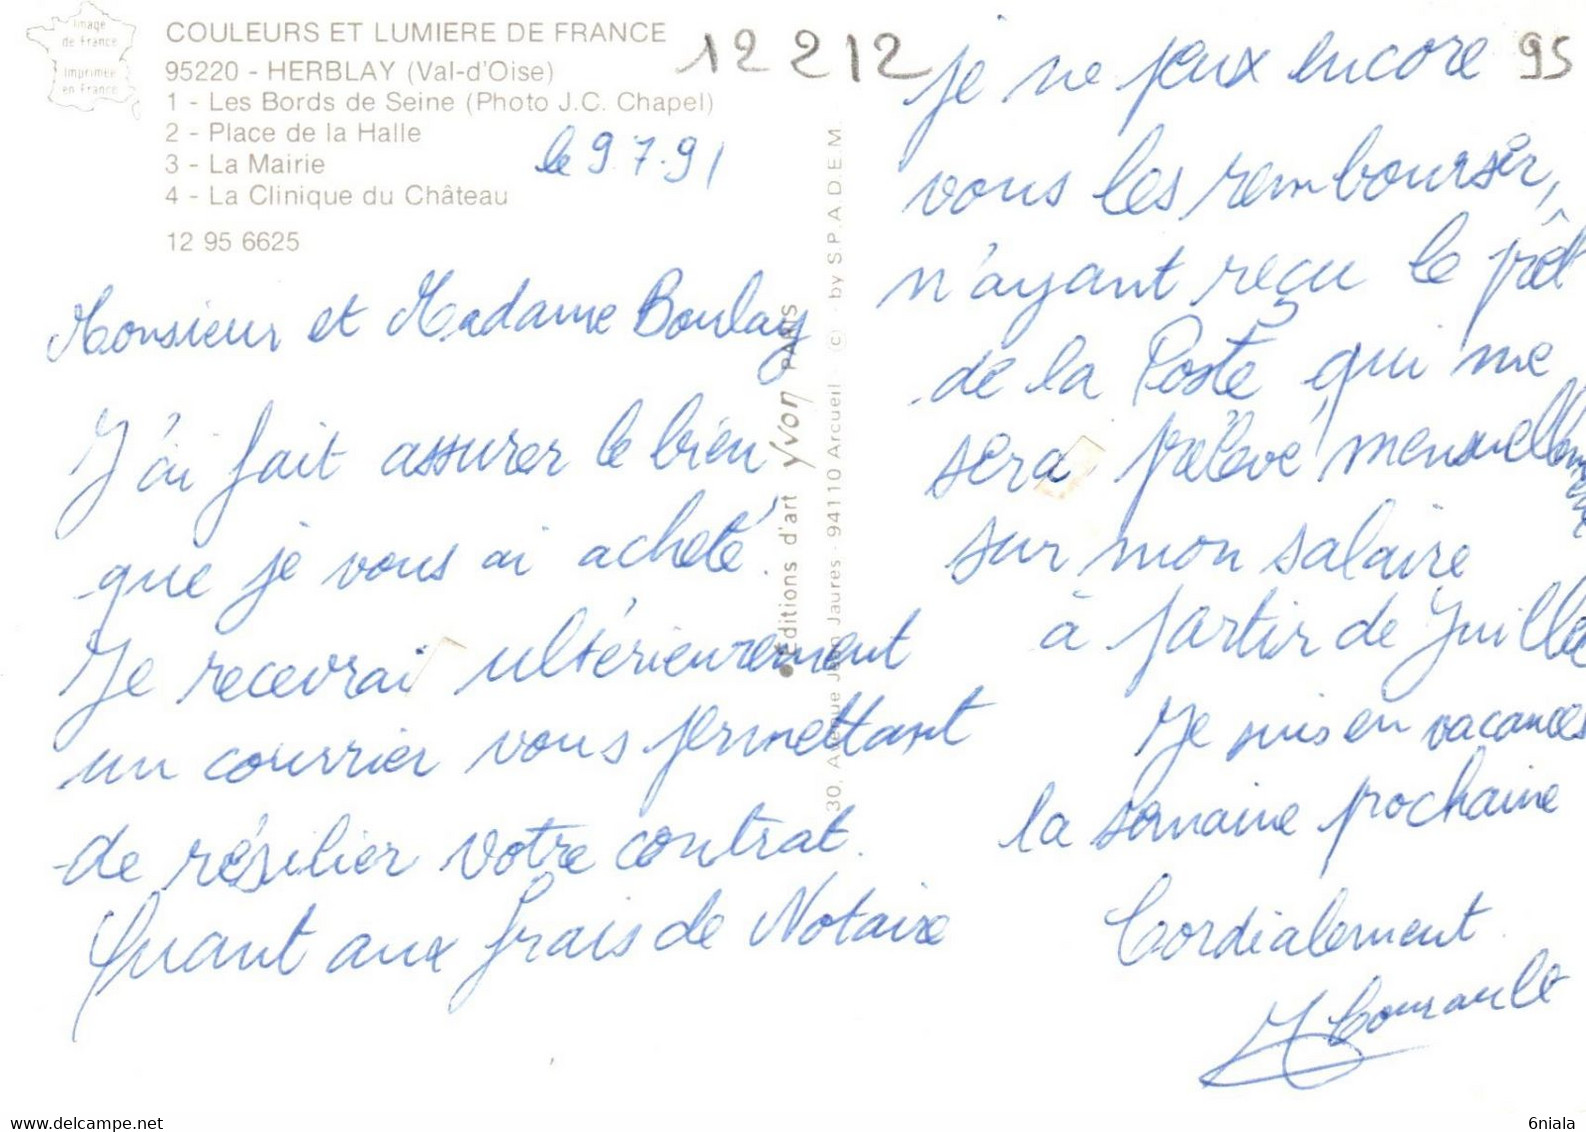 image
de France
imprimée
en France
COULEURS ET LUMIERE DE FRANCE
95220 - HERBLAY (Val-d'Oise)
1 - Les Bords de Seine (Photo J.C. Chapel)
2 - Place de la Halle
3 - La Mairie
4 - La Clinique du Château
12 95 6625
12212
95
le 9.7.91
Monsieur et Madame Boulay
J'ai fait assurer le bien
que je vous ai acheté.
Je recevrai ultérieurement
un courrier vous permettant
de résilier votre contrat.
Quant aux frais de Notaire
je ne peux encore
vous les rembourser,
n'ayant reçu le prêt
de la Poste qui me
sera prélevé mensuellement
sur mon salaire
à partir de Juillet
Je suis en vacances
la semaine prochaine
Cordialement.
Editions d'art yvon PARIS
30, Avenue Jean Jaures - 94110 Arcueil - (c) - by S.P.A.D.E.M.
6niala